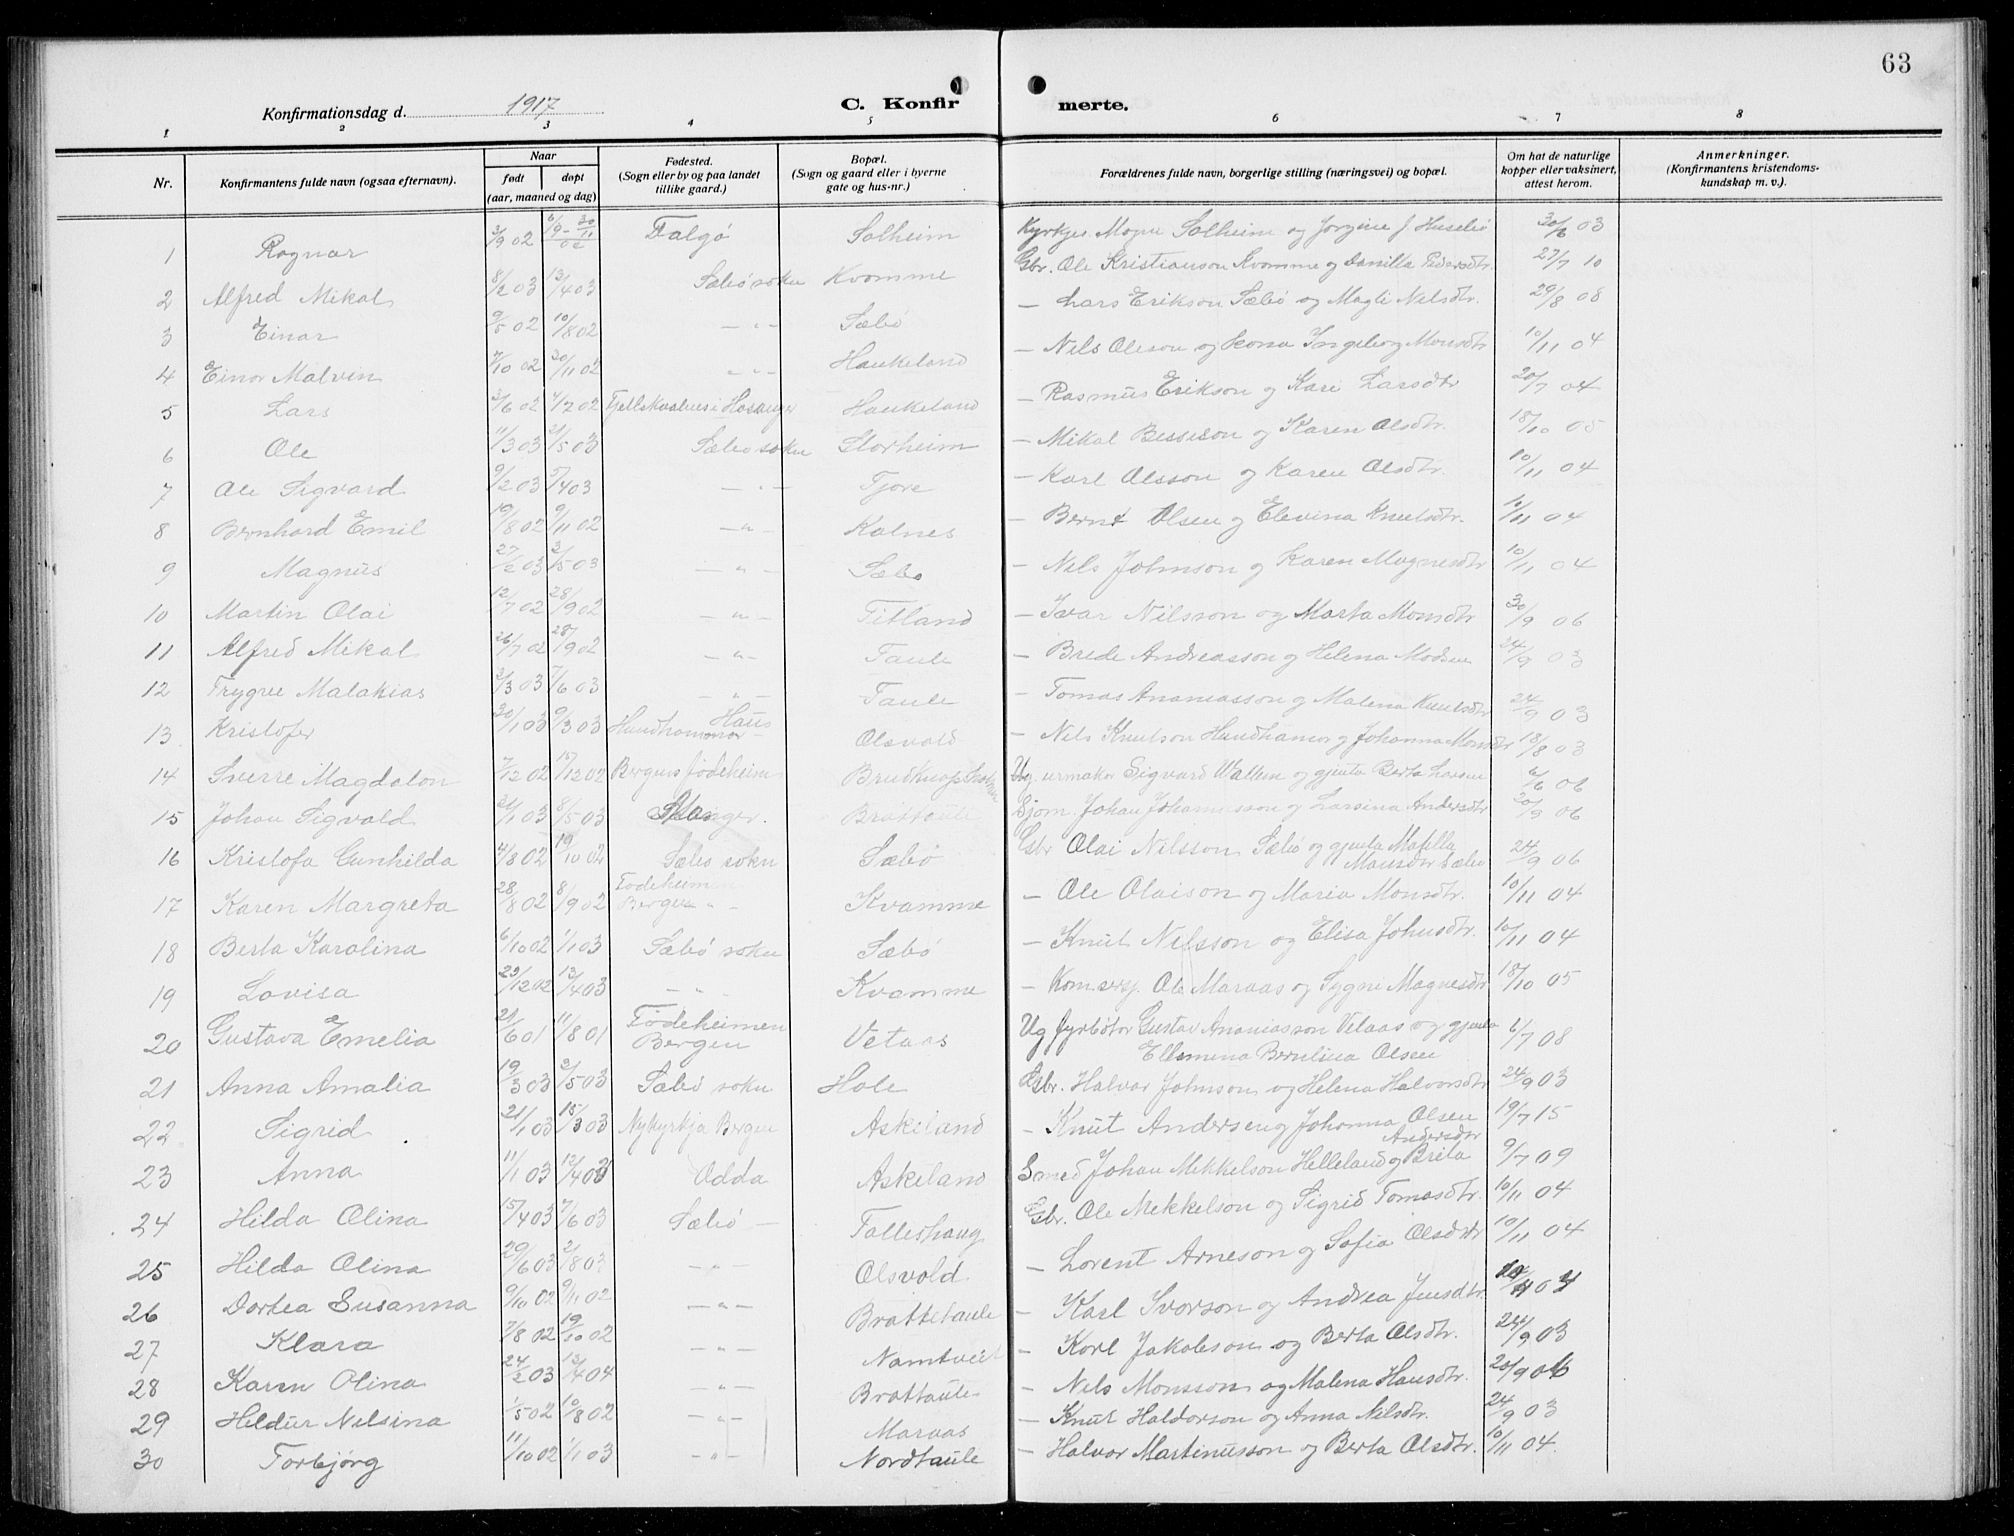 63
Konfirmationsdag d. 1917
C. Konfir merte.
1 2 3 4 5 6 7 8
Nr. Konfirmantens fulde navn (ogsaa efternavn). Naar født døpt (aar, maaned og dag) Fødested. (Sogn eller by og paa landet tillike gaard.) Bopæl. (Sogn og gaard eller i byerne gate og hus-nr.) Forældrenes fulde navn, borgerlige stilling (næringsvei) og bopæl. Om hat de naturlige kopper eller vaksinert, attest herom. Anmerkninger. (Konfirmantens kristendoms-kundskap m. v.).
1 Ragnar 3/9 02 6/19 - 30/11 02 Falgø Solheim Kyrkjes. Mogne Solheim og Jorgine J Husebø 30/6 03
2 Alfred Mikal 8/2 03 13/4 03 Sæbø sokn Kvamme Gbr. Ole Kristianson Kvamme og Danilla Pedersdtr. 27/7 10
3 Einar 9/5 02 10/8 02 — " — Sæbø — Lars Erikson Sæbø og Magli Nilsdtr. 29/8 08
4 Einar Malvin 7/10 02 20/11 02 — " — Haukeland — Nils Oleson og Kona Ingeborg Monsdtr 10/11 04
5 Lars 3/6 02 4/7 02 Fjellskaalnes i Hosanger Haukeland — Rasmus Erikson og Kari Larsdtr 20/7 04
6 Ole 11/3 03 21/5 03 Sæbø sokn Storheim — Mikal Besseson og Karen Olsdtr. 18/10 05
7 Ole Sigvard 9/2 03 5/4 03 — " — Tjore — Karl Olsson og Karen Olsdtr. 10/11 04
8 Bernhard Emil 19/8 02 9/11 02 — " — Kalnes — Bernt Olsen og Elevina Knutsdtr. 10/11 04
9 Magnus 27/2 03 3/5 03 — " — Sæbø — Nils Johnson og Karen Magnesdtr 10/11 04
10 Martin Olai 12/7 02 28/9 02 — " — Titland — Ivar Nilsson og Marta Monsdtr 30/9 06
11 Alfred Mikal 26/7 02 28/9 02 — " — Taule — Brede Andreasson og Helena Madsen 24/9 03
12 Trygve Malakias 2/3 03 7/6 03 — " — Taule — Tomas Ananiasson og Malena Knutsdtr 24/9 03
13 Kristofer 30/1 03 9/3 03 Hundhammar Haus Olsvold — Nils Knutson Hundhamar og Johanna Monsdtr 18/8 03
14 Sverre Magdalon 7/12 02 17/12 02 Bergens fødeheim Ug. urmaker Sigvard Wallem og gjenta Berta Larsen 6/6 06
15 Johan Sigvald 21/1 03 8/5 03 Brattaule Sjøm. Johan Johannesson og Larsina Andersdtr 20/9 06
16 Kristofa Gunhilda 4/8 02 19/10 02 Sæbø sokn Sæbø Gbr Olai Nilsson Sæbø og gjenta Matilla Monsdtr Sæbø 24/9 06
17 Karen Margreta 28/8 02 8/9 02 Fødeheimen Bergen Kvamme — Ole Olaison og Maria Monsdtr. 10/11 04
18 Berta Karolina 6/10 02 1/1 03 Sæbø sokn Sæbø — Knut Nilsson og Elisa Johnsdtr. 10/11 04
19 Lovisa 23/12 02 13/4 03 — " — Kvamme — Kom.sersj. Ole Maraas og Sygni Magnesdtr 18/10 05
20 Gustava Emelia 21/6 01 11/8 01 Fødeheimen Bergen Vetaas Ug fyrbøtar Gustav Ananiasson Vetaas og gjenta Ellemina Berntina Olsen 6/7 08
21 Anna Amalia 19/3 03 3/5 03 Sæbø sokn Hole Gbr. Halvar Johnson og Helena Halvorsdtr 24/9 03
22 Sigrid 21/1 03 15/3 03 Nykyrkja Bergen Askeland — Knut Andersen og Johanna Olsen 19/7 15
23 Anna 11/1 03 12/4 03 Odda Askeland Smed Johan Mekkelson Helleland og Brita Andersdtr 9/7 09
24 Hilda Olina 15/4 03 7/6 03 Sæbø — Talleshaug Gbr. Ole Mekkelson og Sigrid Tomasdtr. 10/11 04
25 Hilda Olina 29/6 03 21/8 03 — " — Olsvold — Lorent Arneson og Sofia Olsdtr 10/11 04
26 Dortea Susanna 9/10 02 9/11 02 — " — Brattetaule — Karl Ivorson og Andrea Jensdtr 10/11 04
27 Klara 7/8 02 19/10 02 — " — Namtveit — Karl Jakobson og Berta Olsdtr. 24/9 03
28 Karen Olina 24/2 03 13/4 04 — " — Brattaule — Nils Monsson og Malena Hansdtr. 20/9 06
29 Hildur Nilsina 1/5 02 10/8 02 — " — Maraas — Knut Haldorson og Anna Nilsdtr. 24/9 03
30 Torbjørg 11/10 02 1/1 03 — " — Nordtaule — Halvor Martinusson og Berta Olsdtr. 10/11 04.